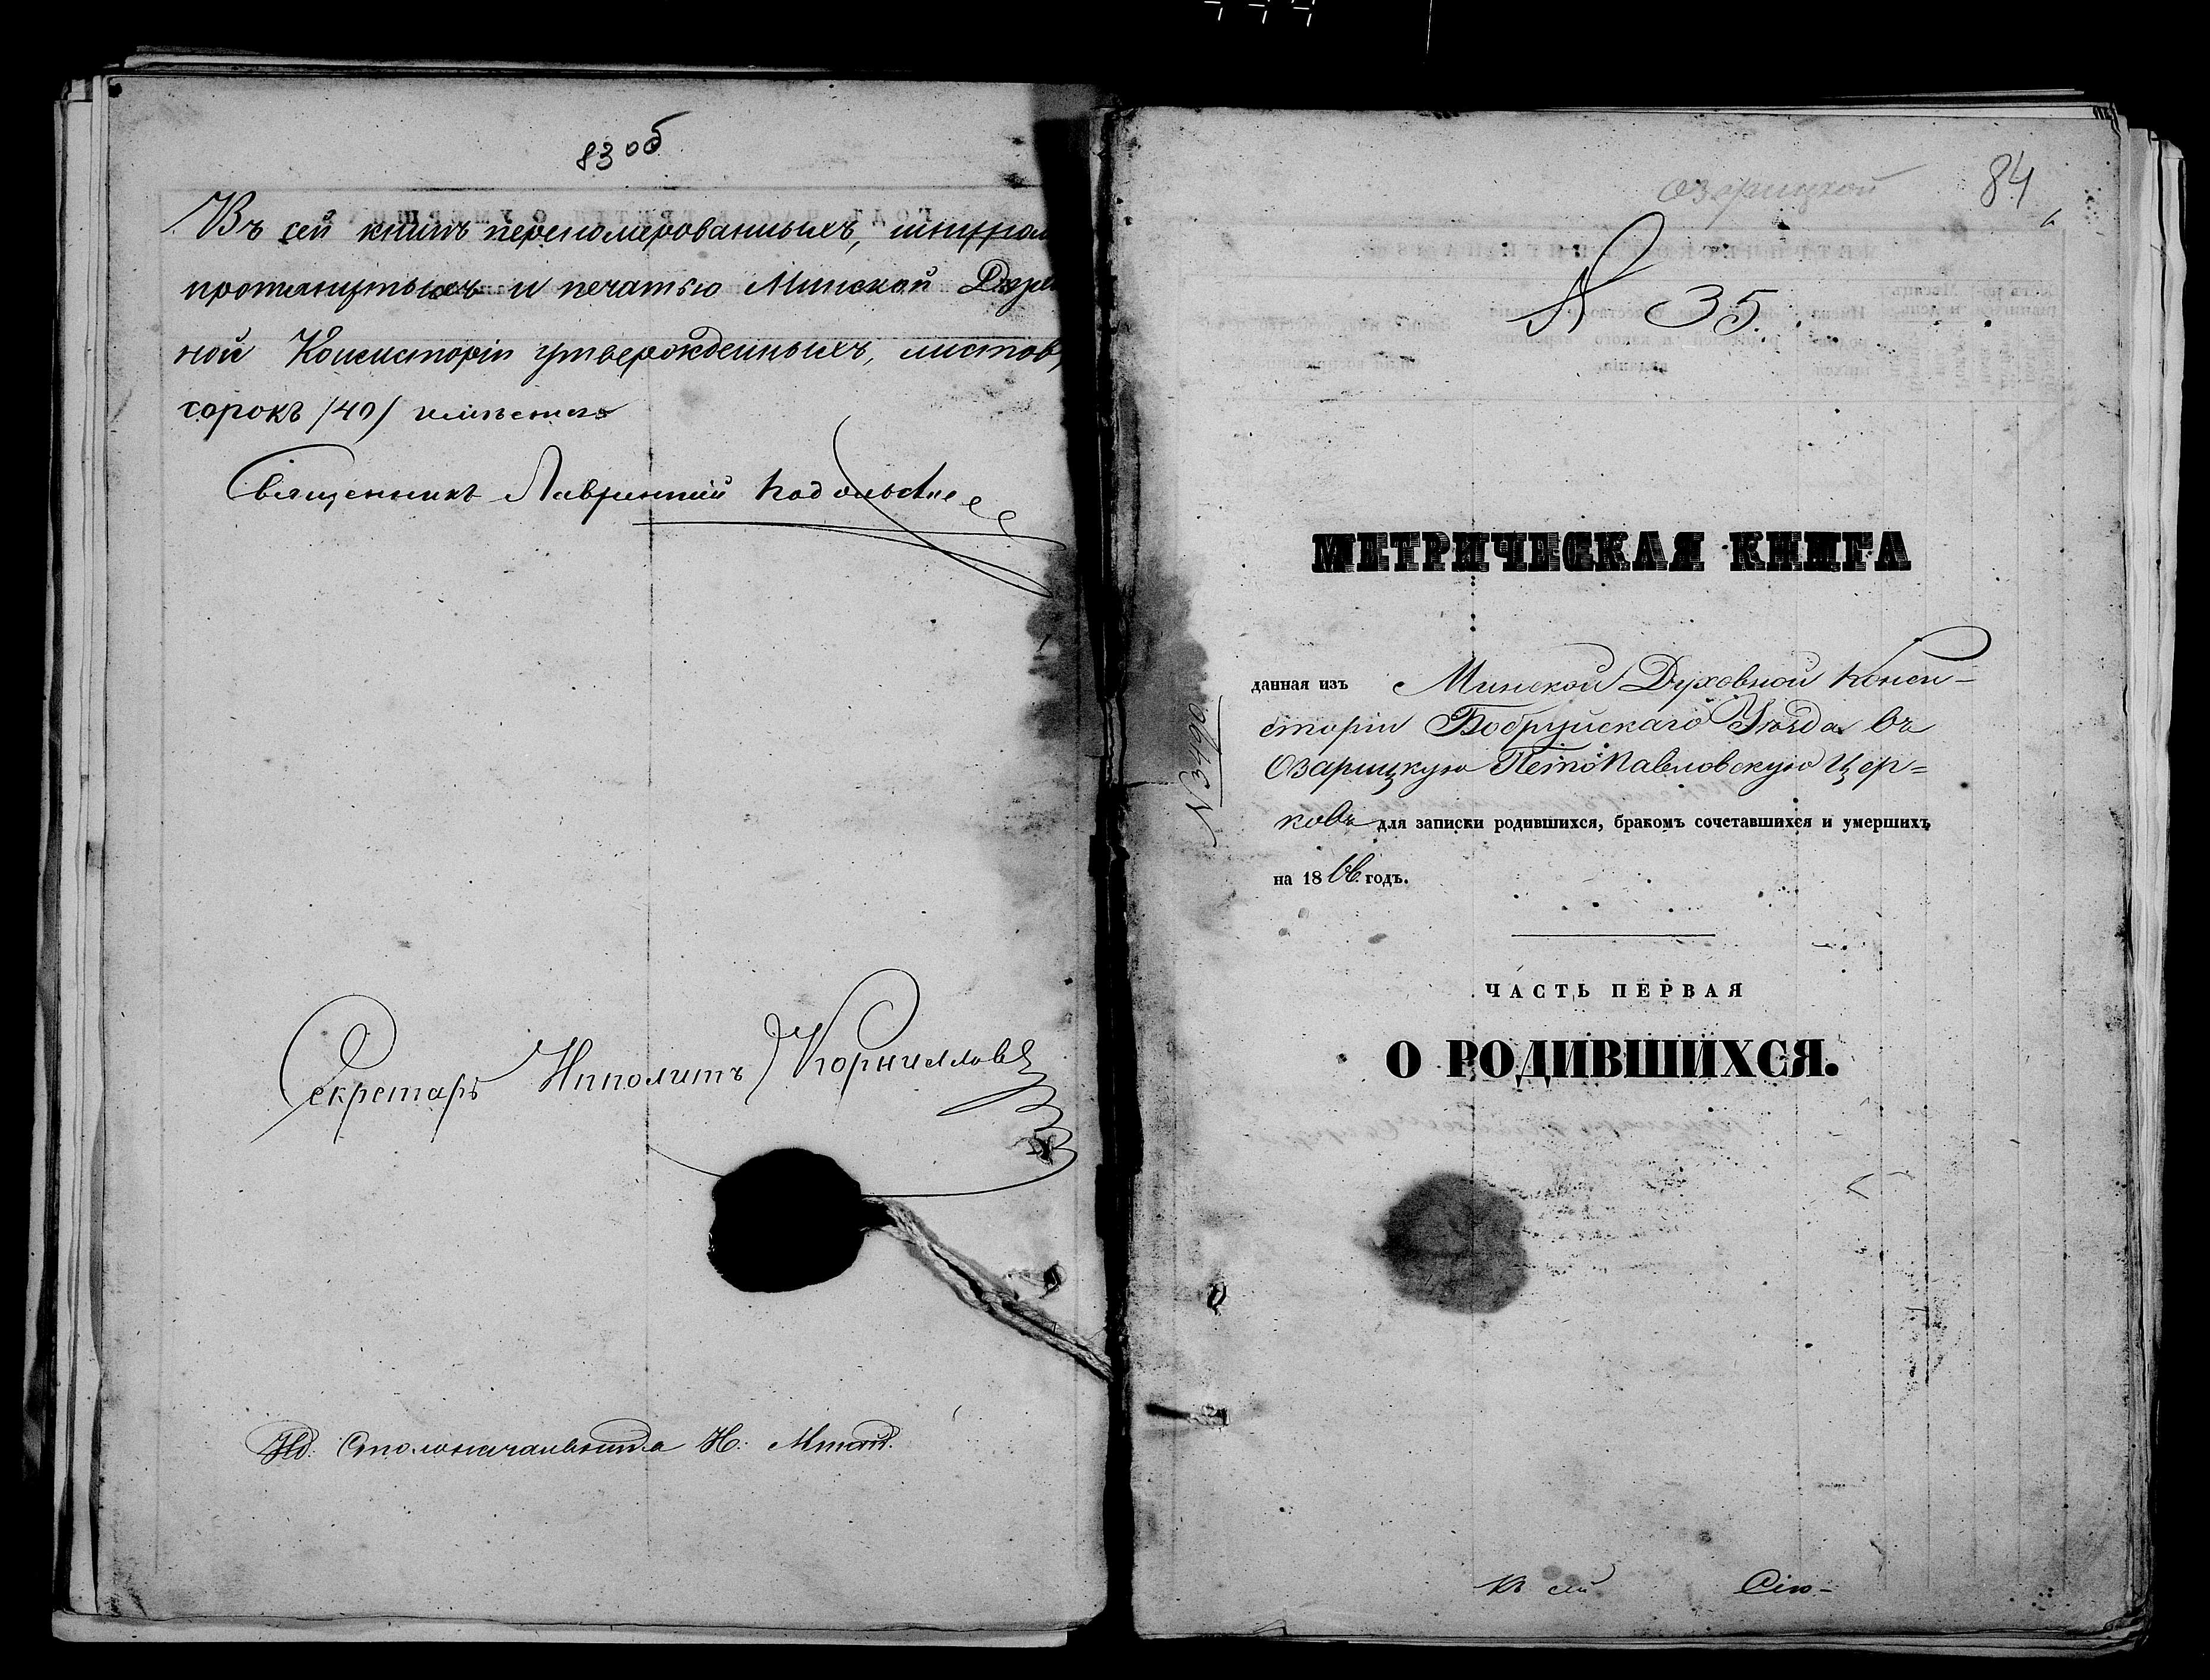 83 об
Въ сей книгѣ перенумерованныхъ, шнуром
протянутыхъ и печатью Минской Духов
ной Консисторіи утвержденныхъ, листовъ
сорокъ /40/ имѣется
Священникъ Лаврентій Подольскій
Секретарь Ипполитъ Корниловъ
Столоначальника Н:
Озарицкой
84
N 35.
МЕТРИЧЕСКАЯ КНИГА
данная изъ Минской Духовной Конси-
сторіи Бобруйскаго Уѣзда въ
Озарицкую ПетроПавловскую Цер=
ковь для записки родившихся, бракомъ сочетавшихся и умершихъ
на 1866. годъ.
N 3490
ЧАСТЬ ПЕРВАЯ
О РОДИВШИХСЯ.
Къ сей